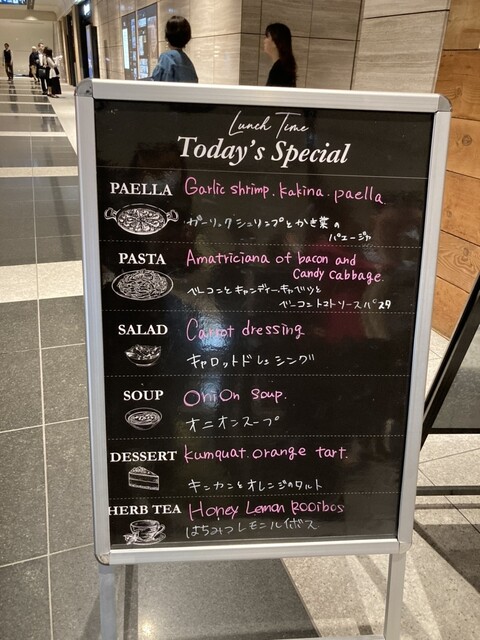 Lunch Time
Today's Special
PAELLA
Garlic shrimp. kakina. paella
ガーリックシュリンプとかき菜の
パエージャ
PASTA
Amatriciana of bacon and
Candy cabbage.
ベーコンとキャンディーキャベツと
ベーコントマトソースパスタ
SALAD
Carrot dressing
キャロットドレッシング
SOUP
Onion soup.
オニオンスープ
DESSERT
kumquat. orange tart.
キンカンとオレンジのタルト
HERB TEA
Honey Lemon Rooibos
はちみつレモンルイボス